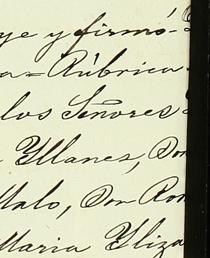 ye y firmó=
a=Rúbrica
los Señores
Yllanes, Don
Malo, Don Ron
Maria Yliza